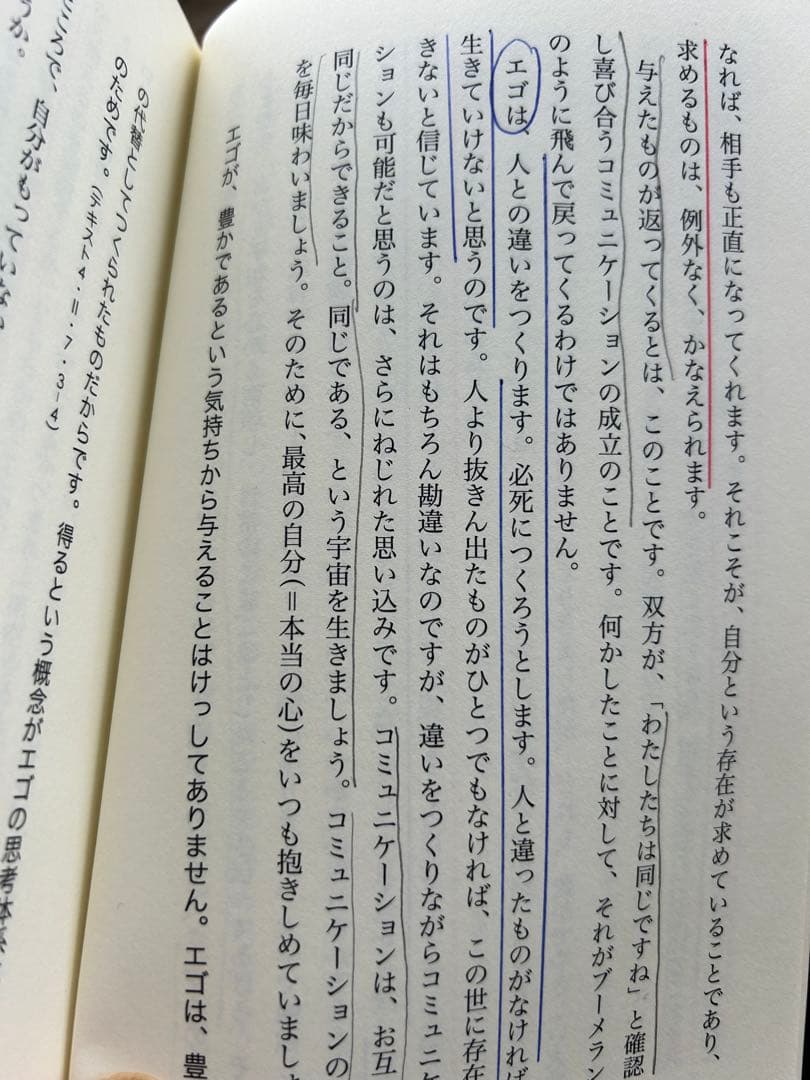 なれば、相手も正直になってくれます。それこそが、自分という存在が求めていることであり、
求めるものは、例外なく、かなえられます。
与えたものが返ってくるとは、このことです。双方が、「わたしたちは同じですね」と確認
し喜び合うコミュニケーションの成立のことです。何かしたことに対して、それがブーメラン
のように飛んで戻ってくるわけではありません。
エゴは、人との違いをつくります。必死につくろうとします。人と違ったものがなければ
生きていけないと思うのです。人より抜きん出たものがひとつでもなければ、この世に存在
きないと信じています。それはもちろん勘違いなのですが、違いをつくりながらコミュニケ
ションも可能だと思うのは、さらにねじれた思い込みです。コミュニケーションは、お互
同じだからできること。同じである、という宇宙を生きましょう。コミュニケーションの
を毎日味わいましょう。そのために、最高の自分(＝本当の心)をいつも抱きしめていまし
エゴが、豊かであるという気持ちから与えることはけっしてありません。エゴは、豊
の代替としてつくられたものだからです。得るという概念がエゴの思考体系
のためです。(テキスト4・II・7・3-4)
ころで、自分がもっていない
うか。